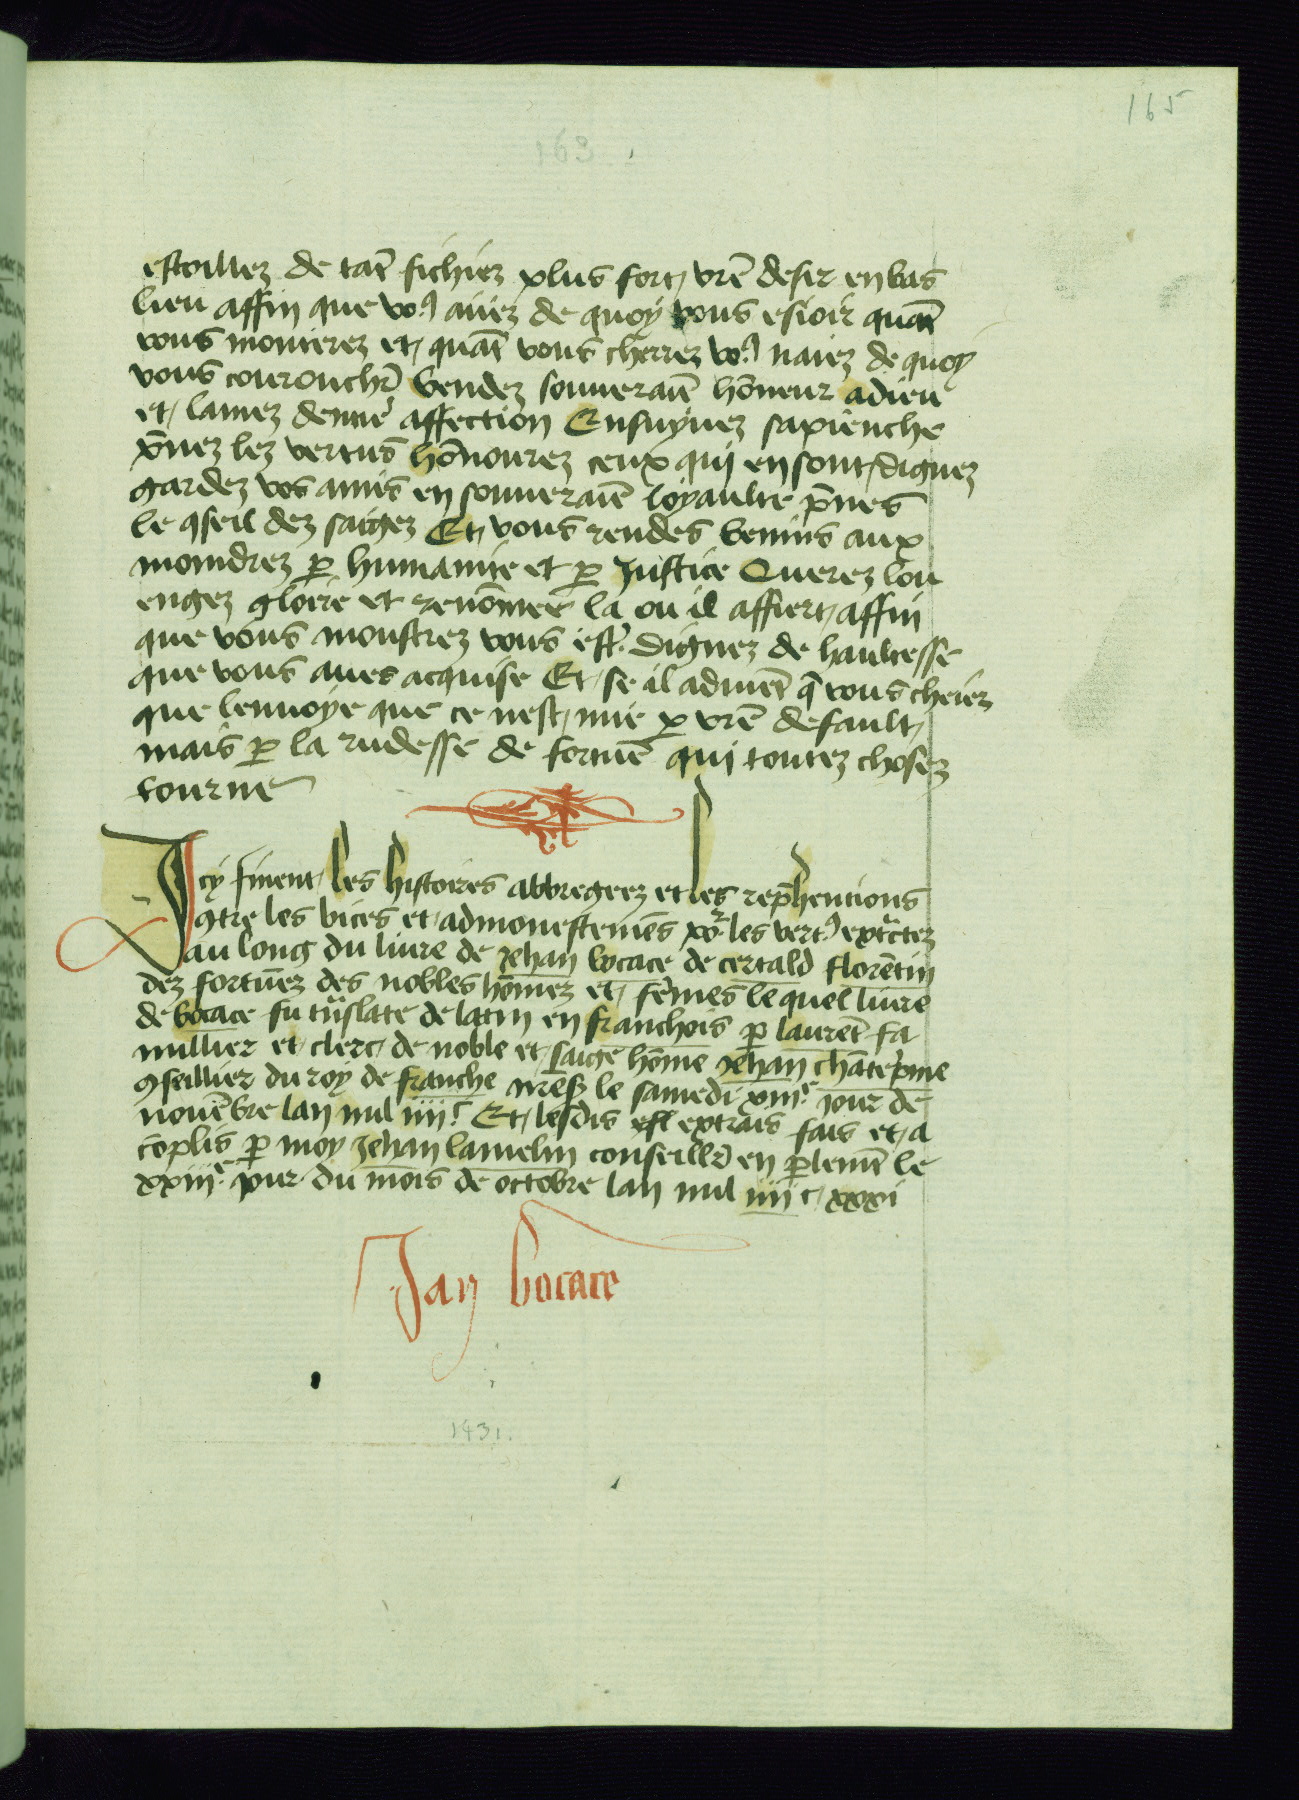 165
163
estoillez de tāt fichiez plus fort vrē desir en bas
lieu affin que voꝰ aiiez de quoy vous esioir quāt
vous monterez et quāt vous cherrez voꝰ naiez de quoy
vous courouchr̄ Rendez souueraiē hōneur a dieu
et lamez dentie᷑ affection Ensuyuez sapienche
p̄nez lez vertus hōnourez ceux qui en sont dignez
gardez vos amis en souueraiē loyaulte p̄nes
le ꝯseil dez saigez Et vous rendes benins aux
moindrez ꝑ humanite et ꝑ Justice Querez lou
engez gloire et renōmee la ou il affiert affin
que vous monstrez vous estꝰ dignez de haultesse
que vous aues acquise Et se il aduiēt q̄ vous cheiez
que len voye que ce nest mie ꝑ vrē default
mais ꝑ la rudesse de fortuē qui toutez chosez
tourne
Icy finent les histoires abbregeez et les rep̄hentions
ꝯtre les vices et admonestemēs po᷑ les vertꝰ extᷓctez
au long du liure de Jehan bocace de certald florentin
dez fortuēz des nobles hōmez et fēmes le quel liure
de bocace fu tᷓnslate de latin en franchois ꝑ laurēt fa
millier et clerc de noble et saige hōme Jehan chāteprime
ꝯseillier du roy de franche nr̄es le samedi xiiiᵉ jour de
nouēbre lan mil iiiiᶜ Et lesdis extrais fais et a
cōplis ꝑ moy Jehan lamelin conseillr̄ en ꝑlemēt le
xxiiiᵉ jour du mois de octobre lan mil iiii c xxxi
Jan bocace
1431.